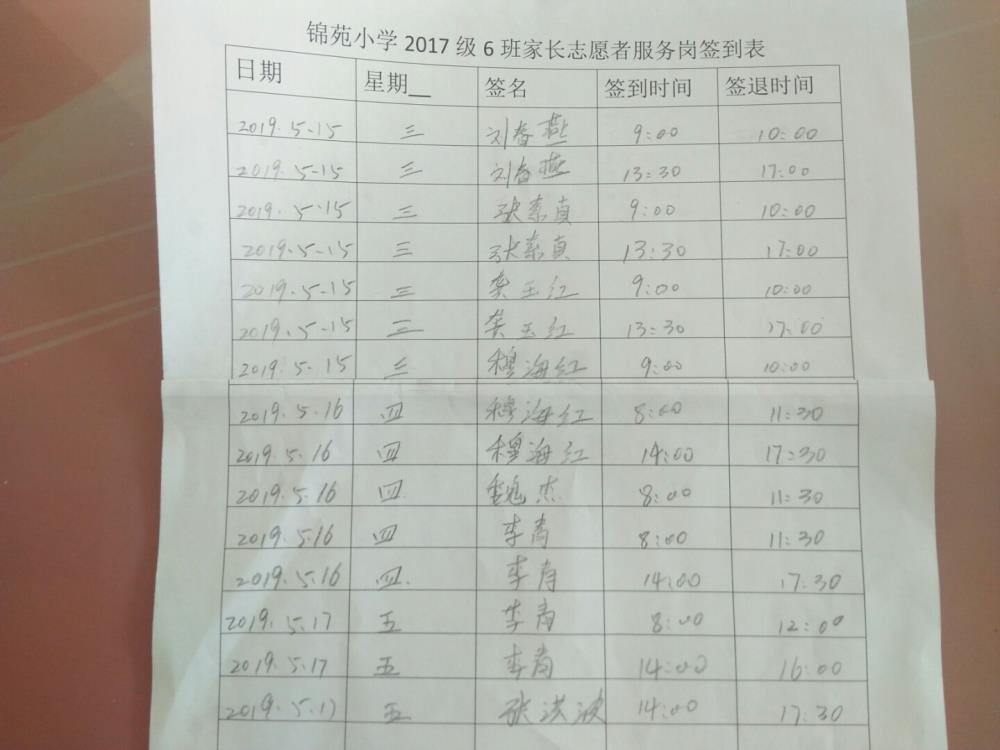 锦苑小学 2017 级 6 班家长志愿者服务岗签到表
日期 星期__ 签名 签到时间 签退时间
2019.5-15 三 刘春燕 9:00 10:00
2019.5-15 三 刘春燕 13:30 17:00
2019.5-15 三 张素真 9:00 10:00
2019.5-15 三 张素真 13:30 17:00
2019.5-15 三 龚玉红 9:00 10:00
2019.5-15 三 龚玉红 13:30 17:00
2019.5.15 三 穆海红 9:00 10:00
2019.5.16 四 穆海红 8:00 11:30
2019.5.16 四 穆海红 14:00 17:30
2019.5.16 四 魏杰 8:00 11:30
2019.5.16 四 李青 8:00 11:30
2019.5.16 四 李青 14:00 17:30
2019.5.17 五 李青 8:00 12:00
2019.5.17 五 李青 14:00 16:00
2019.5.17 五 张洪波 14:00 17:30